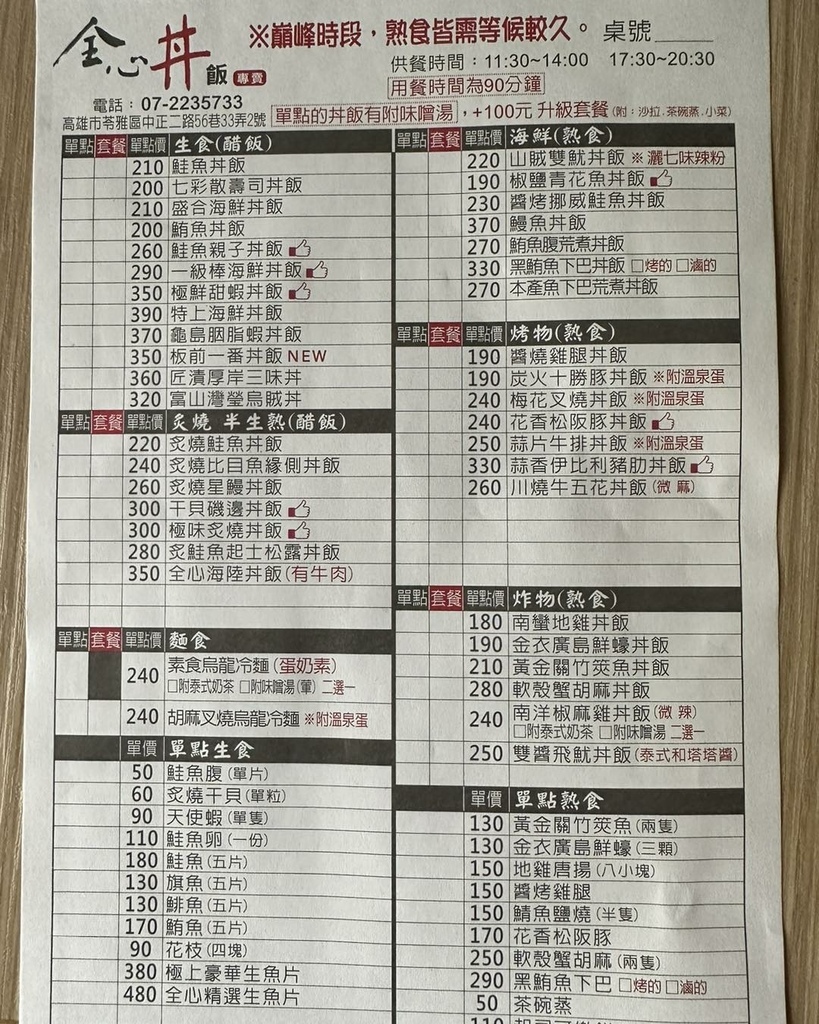 全心丼飯 專賣
※巔峰時段，熟食皆需等候較久。 桌號
供餐時間：11:30~14:00 17:30~20:30
用餐時間為90分鐘
電話：07-2235733
高雄市苓雅區中正二路56巷33弄2號
單點的丼飯有附味噌湯，+100元 升級套餐(附：沙拉.茶碗蒸.小菜)
單點 套餐 單點價 生食(醋飯)
210 鮭魚丼飯
200 七彩散壽司丼飯
210 盛合海鮮丼飯
200 鮪魚丼飯
260 鮭魚親子丼飯
290 一級棒海鮮丼飯
350 極鮮甜蝦丼飯
390 特上海鮮丼飯
370 龜島胭脂蝦丼飯
350 板前一番丼飯 NEW
360 匠漬厚岸三味丼
320 富山灣瑩烏賊丼
單點 套餐 單點價 炙燒 半生熟(醋飯)
220 炙燒鮭魚丼飯
240 炙燒比目魚緣側丼飯
260 炙燒星鰻丼飯
300 干貝磯邊丼飯
300 極味炙燒丼飯
280 炙鮭魚起士松露丼飯
350 全心海陸丼飯(有牛肉)
單點 套餐 單點價 麵食
240 素食烏龍冷麵(蛋奶素)
□附泰式奶茶 □附味噌湯(葷) 二選一
240 胡麻叉燒烏龍冷麵 ※附溫泉蛋
單價 單點生食
50 鮭魚腹(單片)
60 炙燒干貝(單粒)
90 天使蝦(單隻)
110 鮭魚卵(一份)
180 鮭魚(五片)
130 旗魚(五片)
130 鯡魚(五片)
170 鮪魚(五片)
90 花枝(四塊)
380 極上豪華生魚片
480 全心精選生魚片
單點 套餐 單點價 海鮮(熟食)
220 山賊雙魷丼飯 ※灑七味辣粉
190 椒鹽青花魚丼飯
230 醬烤挪威鮭魚丼飯
370 鰻魚丼飯
270 鮪魚腹荒煮丼飯
330 黑鮪魚下巴丼飯 □烤的 □滷的
270 本產魚下巴荒煮丼飯
單點 套餐 單點價 烤物(熟食)
190 醬燒雞腿丼飯
190 炭火十勝豚丼飯 ※附溫泉蛋
240 梅花叉燒丼飯 ※附溫泉蛋
240 花香松阪豚丼飯
250 蒜片牛排丼飯 ※附溫泉蛋
330 蒜香伊比利豬肋丼飯
260 川燒牛五花丼飯(微 麻)
單點 套餐 單點價 炸物(熟食)
180 南蠻地雞丼飯
190 金衣廣島鮮蠔丼飯
210 黃金關竹筴魚丼飯
280 軟殼蟹胡麻丼飯
240 南洋椒麻雞丼飯(微 辣)
□附泰式奶茶 □附味噌湯 二選一
250 雙醬飛魷丼飯(泰式和塔塔醬)
單價 單點熟食
130 黃金關竹筴魚(兩隻)
130 金衣廣島鮮蠔(三顆)
150 地雞唐揚(八小塊)
150 醬烤雞腿
150 鯖魚鹽燒(半隻)
170 花香松阪豚
250 軟殼蟹胡麻(兩隻)
290 黑鮪魚下巴 □烤的 □滷的
50 茶碗蒸